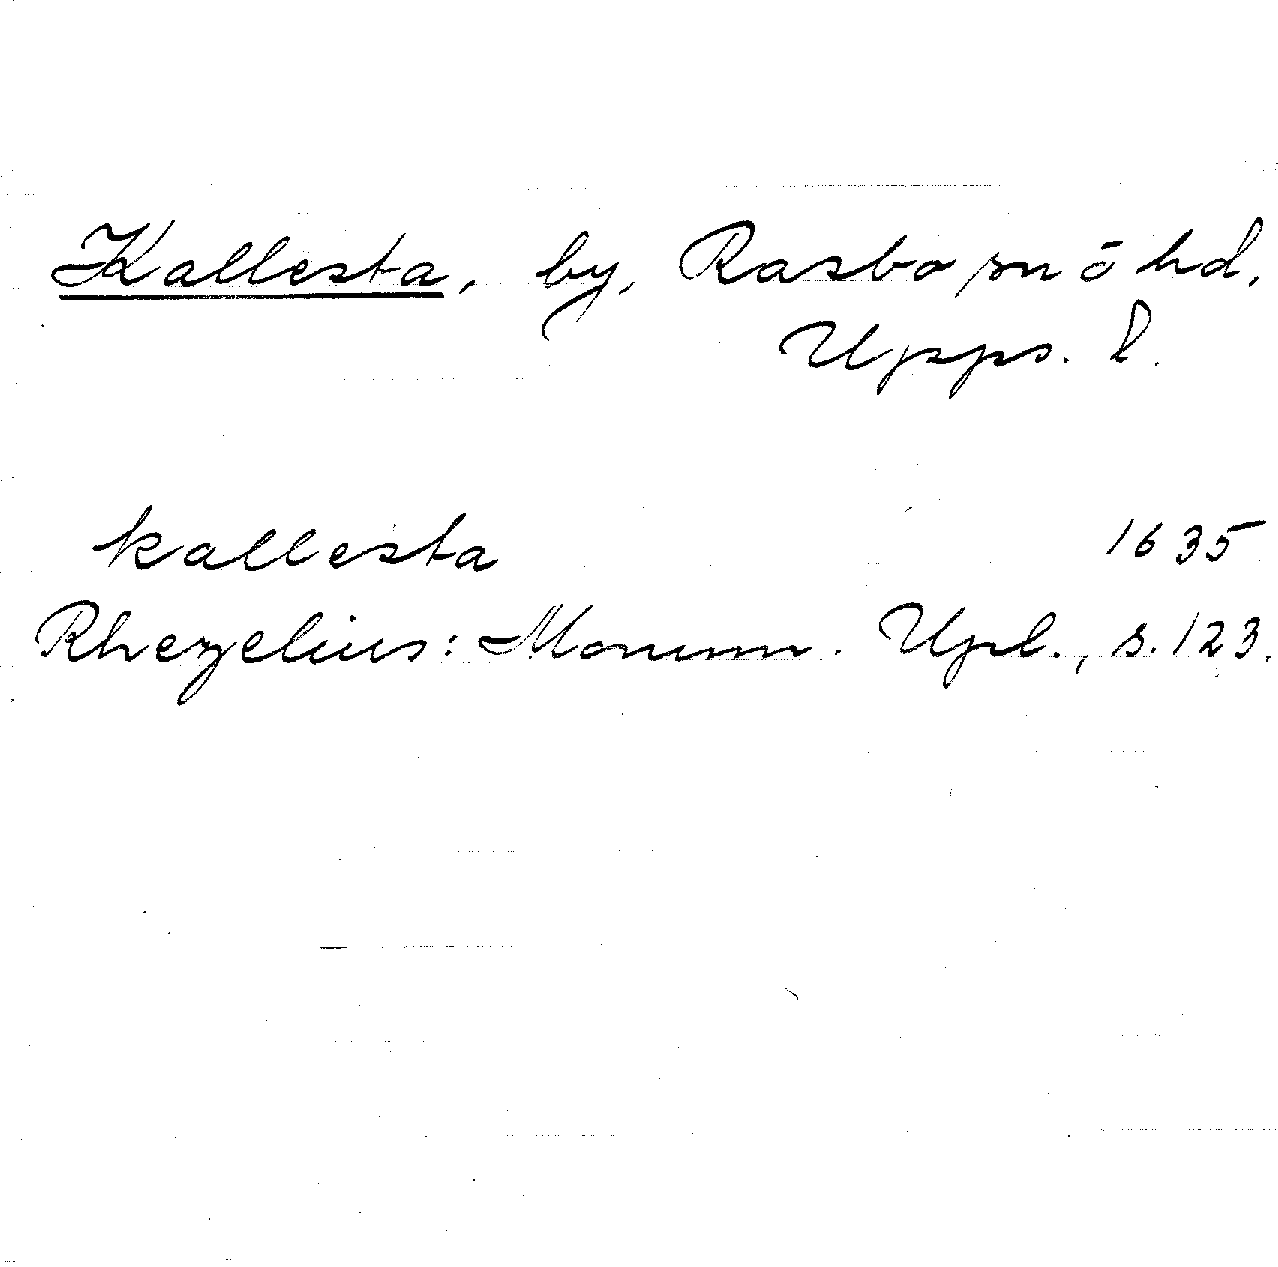 Kallesta, by, Rasbo sn ō hd,
Upps. l.
kallesta 1635
Rhezelius: Monum. Upl., s. 123.